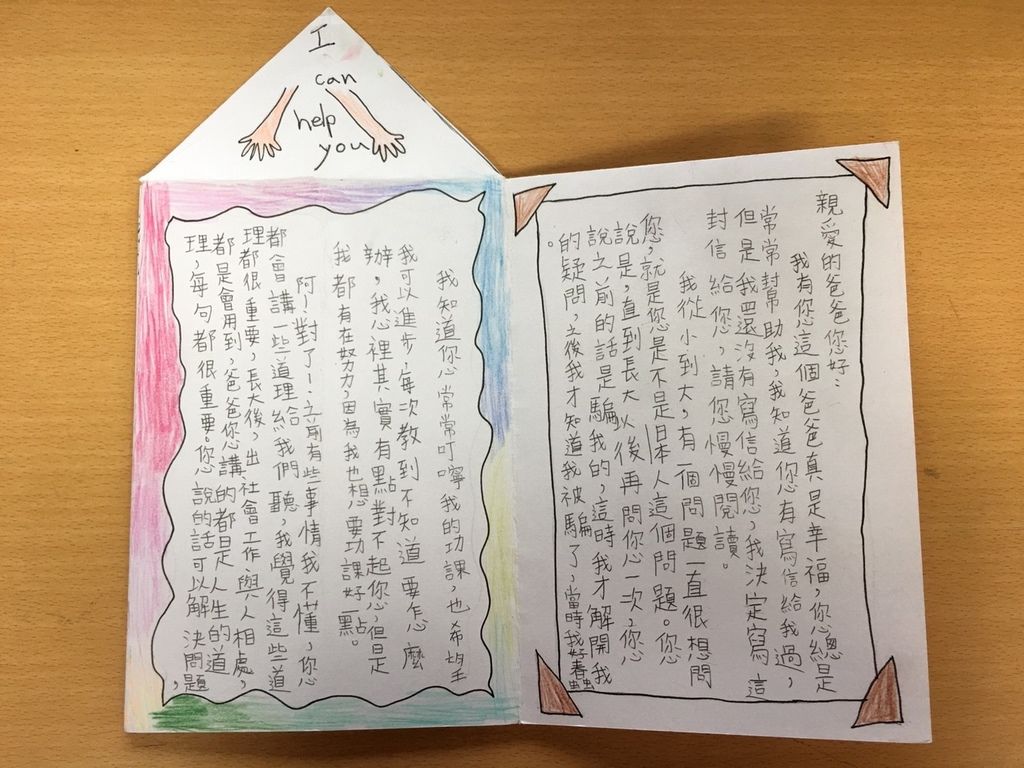 I
can
help
you
親愛的爸爸您好：
我有您這個爸爸真是幸福，您總是
常常幫助我，我知道您有寫信給我過，
但是我還沒有寫信給您，我決定寫這
封信給您，請您慢慢閱讀。
我從小到大，有一個問題一直很想問
您，就是您是不是日本人這個問題。您
說是，直到長大以後再問您一次，您
說之前的話是騙我的，這時我才解開我
的疑問，之後我才知道我被騙了，當時我好蠢
。
我知道您常常叮嚀我的功課，也希望
我可以進步，每次教到不知道要怎麼
辦，我心裡其實有點對不起您，但是
我都有在努力，因為我也想要功課好一點。
阿！對了！之前有些事情我不懂，您
都會講一些道理給我們聽，我覺得這些道
理都很重要，長大後，出社會工作與人相處，
都是會用到，爸爸您講的都是人生的道
理，每句都很重要。您說的話可以解決問題，